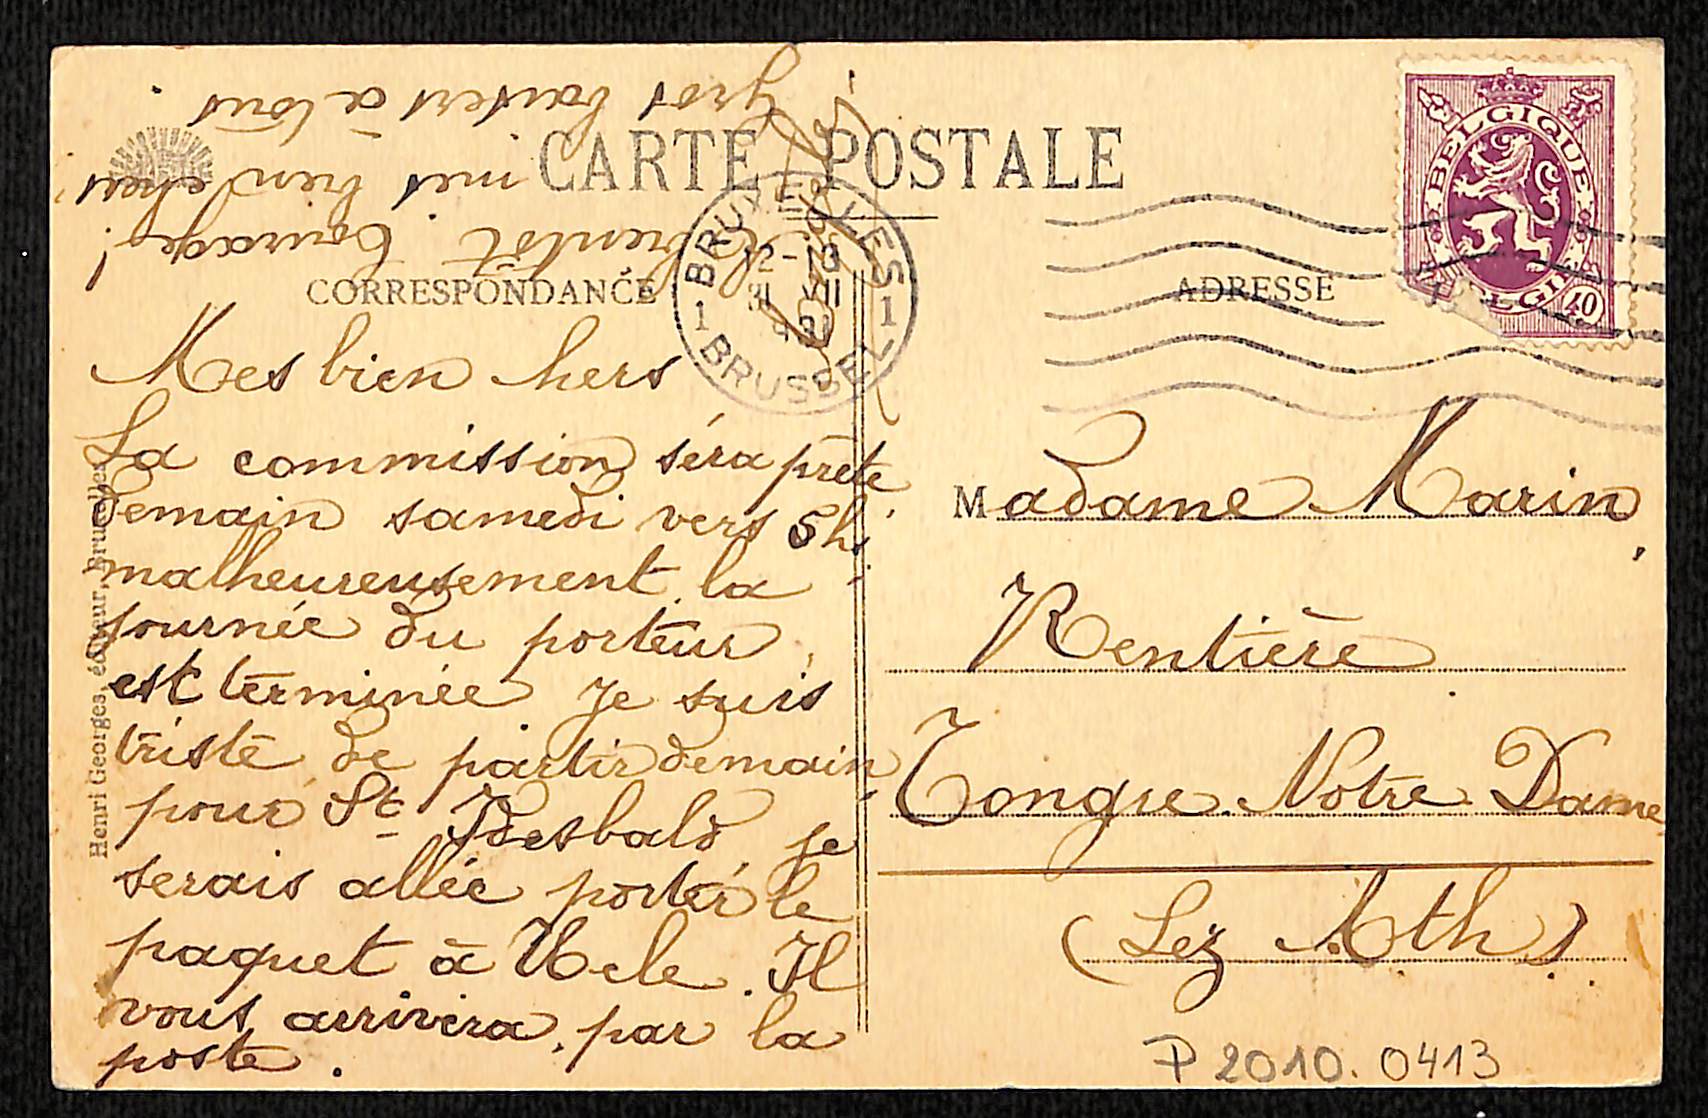 CARTE POSTALE
CORRESPONDANCE
ADRESSE
BELGIQUE
BELGIË
40
BRUXELLES
1 1
12-13
31 VII
BRUSSEL
Mes bien chers
La commission séra prète
demain samedi vers 5 h.
malheureusement la
journée du porteur
est terminée Je suis
triste de partir demain
pour St Idesbald, je
serais allée porter le
paquet à Mele. Il
vous arrivera par la
poste.
A bientôt Courage !
mes bien chers
gros baisers à tous
Madame Marin,
Rentière
Tongre Notre Dame
(Lez Ath)
Henri Georges, éditeur, Bruxelles
P 2010.0413